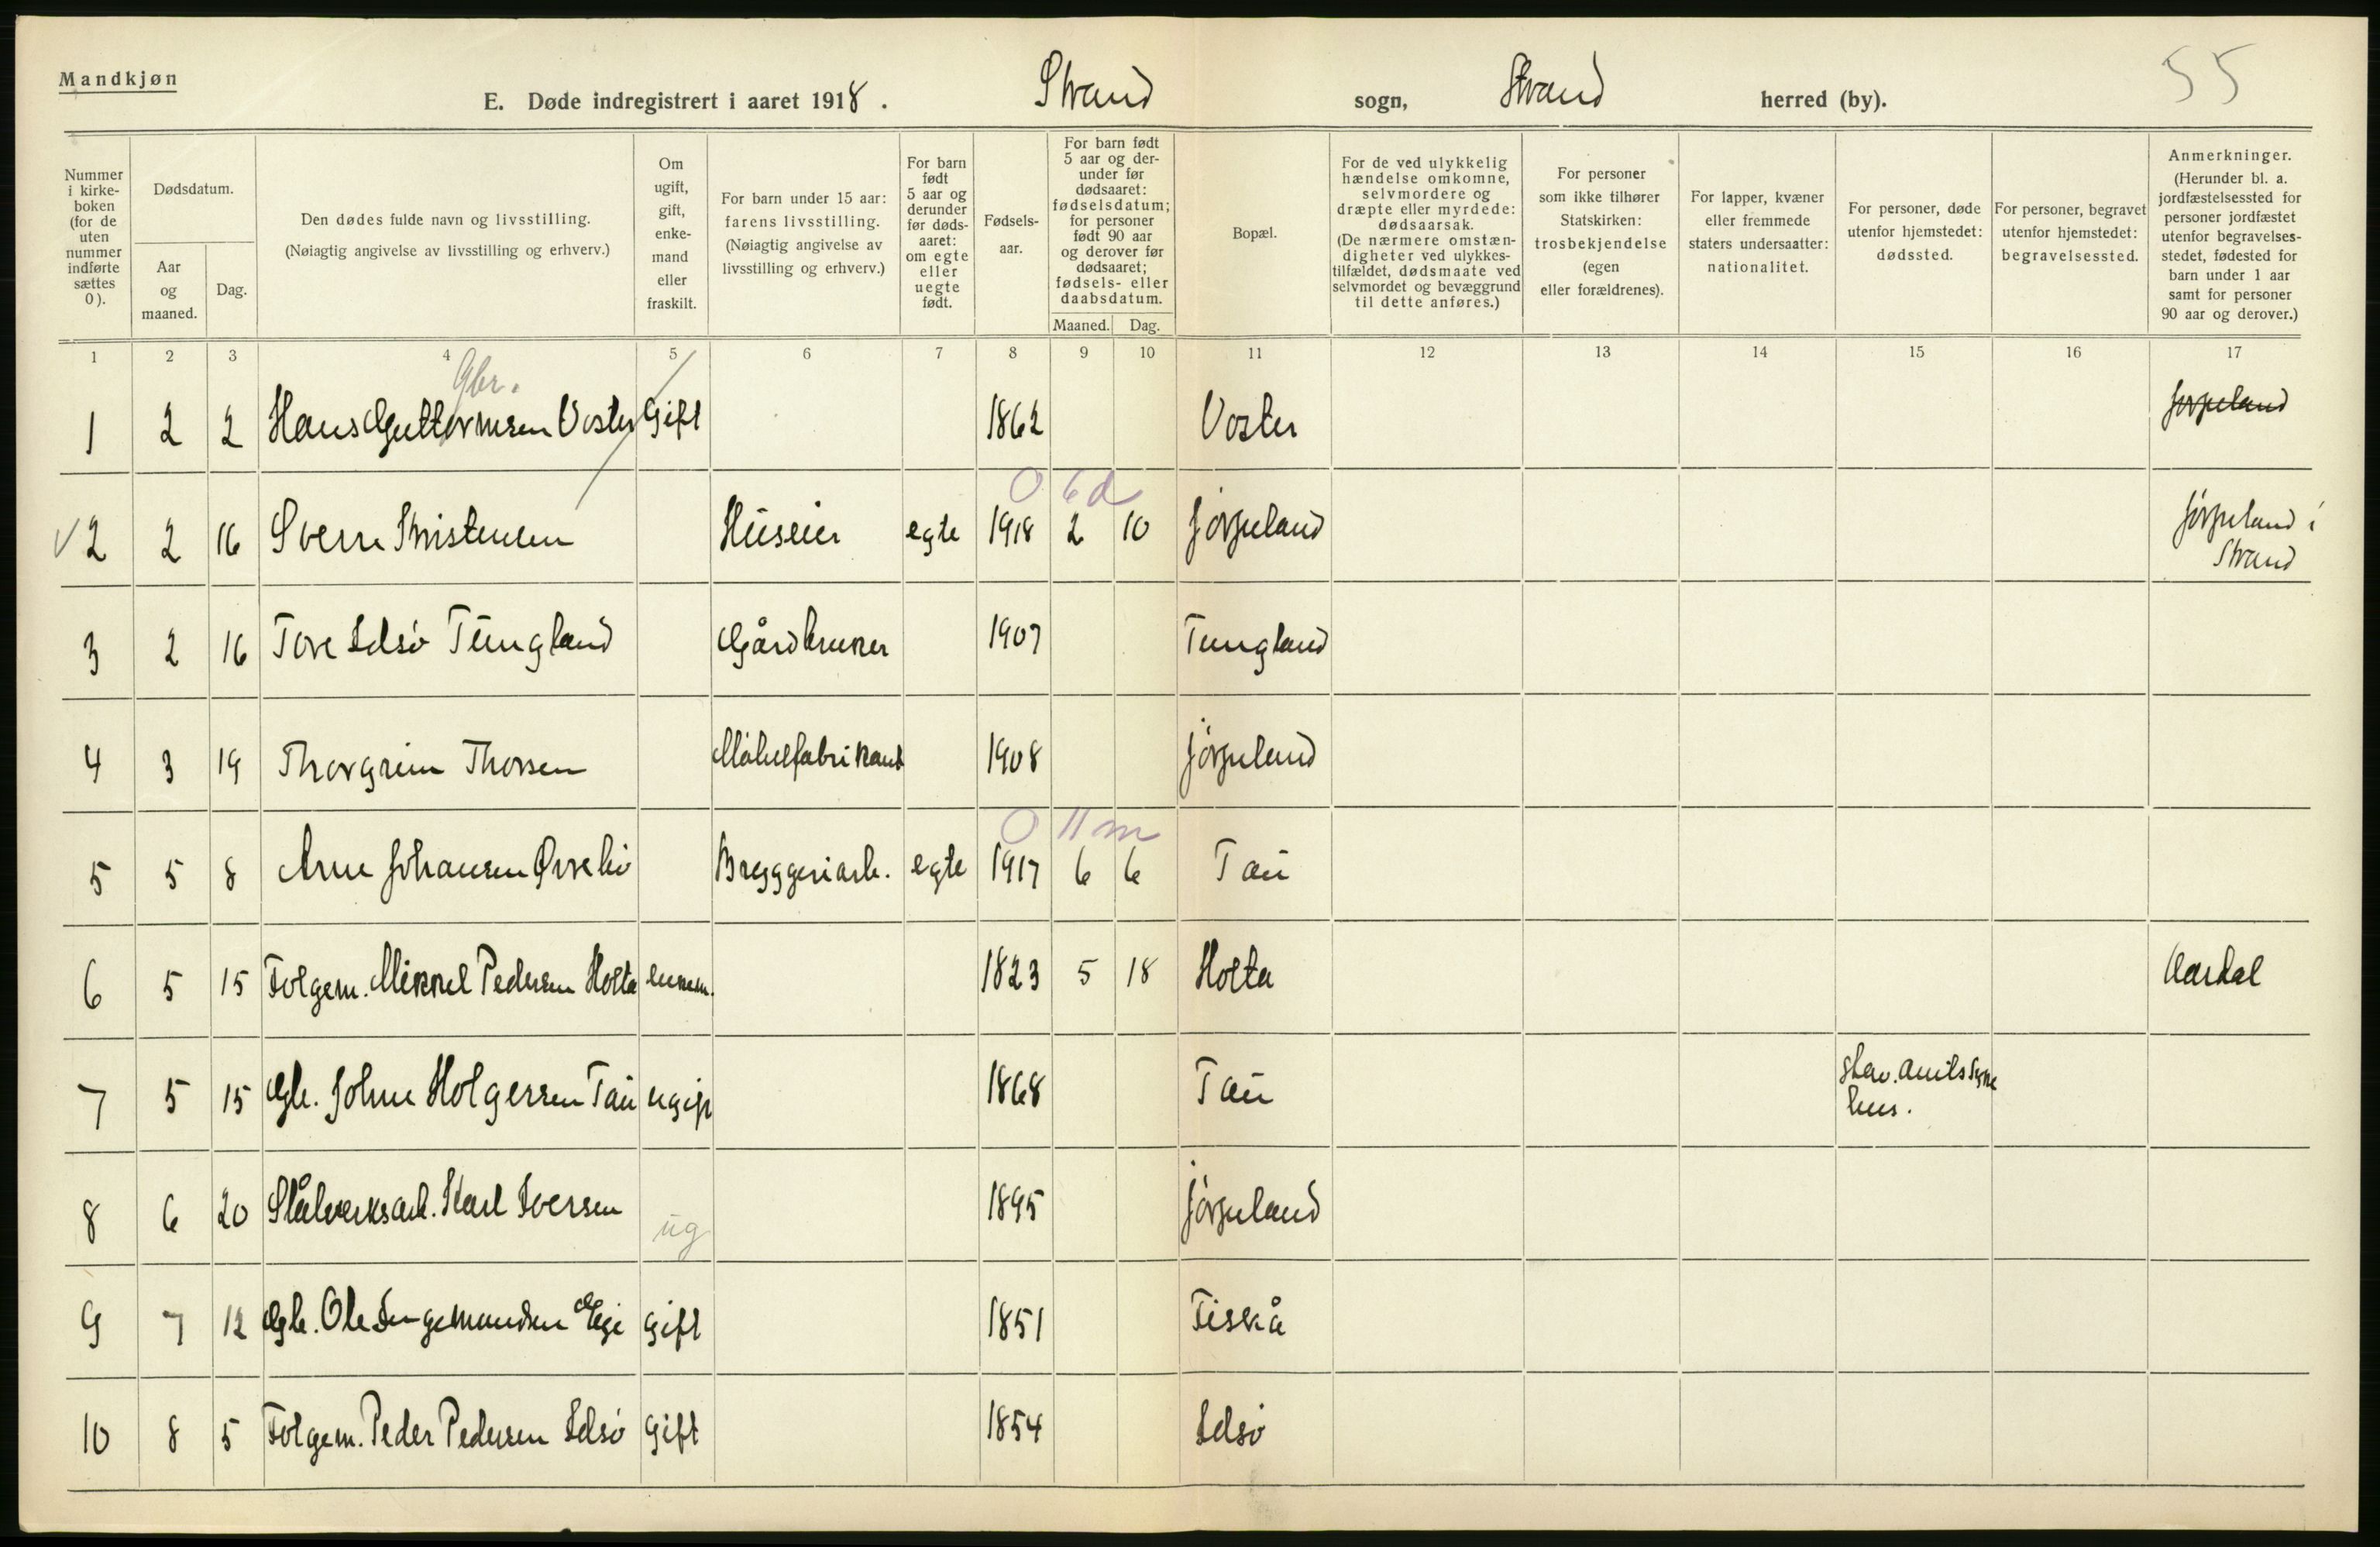 Mandkjøn
E. Døde indregistrert i aaret 1918. Strand sogn, Strand herred (by). 55
Nummer i kirkeboken (for de uten nummer indførte sættes 0).
Dødsdatum.
Aar og maaned.
Dag.
Den dødes fulde navn og livsstilling.
(Nøiagtig angivelse av livsstilling og erhverv.)
Om ugift, gift, enkemand eller fraskilt.
For barn under 15 aar: farens livsstilling.
(Nøiagtig angivelse av livsstilling og erhverv.)
For barn født 5 aar og derunder før dødsaaret: om egte eller uegte født.
Fødselsaar.
For barn født 5 aar og derunder før dødsaaret: fødselsdatum; for personer født 90 aar og derover før dødsaaret; fødsels- eller daabsdatum.
Maaned. Dag.
Bopæl.
For de ved ulykkelig hændelse omkomne, selvmordere og dræpte eller myrdede: dødsaarsak.
(De nærmere omstændigheter ved ulykkestilfældet, dødsmaate ved selvmordet og bevæggrund til dette anføres.)
For personer som ikke tilhører Statskirken: trosbekjendelse (egen eller forældrenes).
For lapper, kvæner eller fremmede staters undersaatter: nationalitet.
For personer, døde utenfor hjemstedet: dødssted.
For personer, begravet utenfor hjemstedet: begravelsessted.
Anmerkninger.
(Herunder bl. a. jordfæstelsessted for personer jordfæstet utenfor begravelsesstedet, fødested for barn under 1 aar samt for personer 90 aar og derover.)
1 2 3 4 5 6 7 8 9 10 11 12 13 14 15 16 17
Gbr.
1 2 2 Hans Guttormsen Voster Gift 1862 Voster Jørpeland
0 6 d
√ 2 2 16 Sverre Kristensen Huseier egte 1918 2 10 Jørpeland Jørpeland i
Strand
3 2 16 Tore Idsø Tungland Gårdbruker 1907 Tungland
4 3 19 Thorgrim Thorsen Møbelfabrikant 1908 Jørpeland
0 11 m
5 5 8 Arne Johansen Ørrebø Bryggeriarb. egte 1917 6 6 Tau
6 5 15 Folgem. Mikkel Pedersen Holta enkem. 1823 5 18 Holta Aardal
7 5 15 Gb. Johne Holgersen Tau ugift 1868 Tau Stav. Amts Syke
hus.
8 6 20 Stålverksarb. Karl Iversen ug 1895 Jørpeland
9 7 12 Gb. Ole Ingemundsen Eje Gift 1851 Fiskå
10 8 5 Folgem. Peder Pedersen Idsø Gift 1854 Idsø